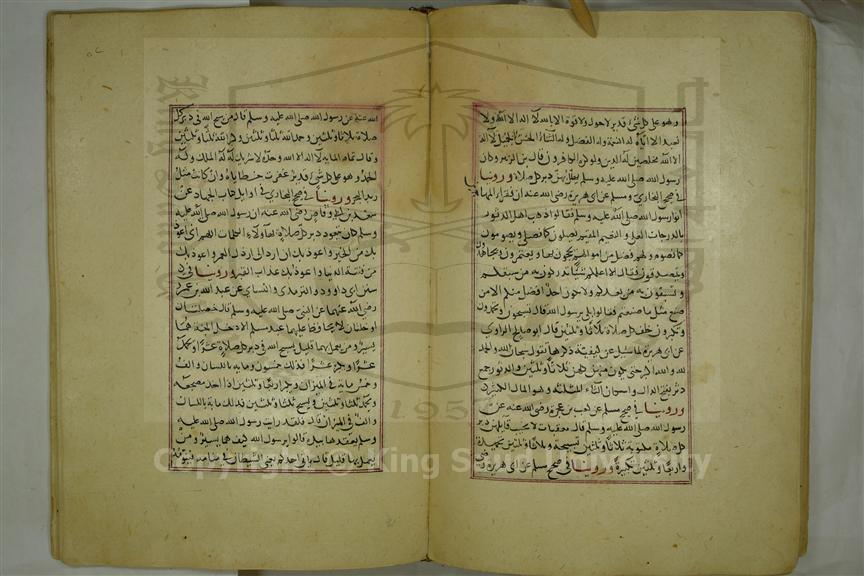 وهو على كل شئ قدير لا حول ولا قوة الا بالله لا اله الا الله ولا
نعبد الا اياه له النعمة وله الفضل وله الثناء الحسن الجميل لا اله
الا الله مخلصين له الدين ولو كره الكافرون قال بن الزبير وكان
رسول الله صلى الله عليه وسلم يهلل بهن دبر كل صلاة وروينا
في صحيح البخاري ومسلم عن ابي هريرة رضي الله عنه ان فقراء المهاجرين
اتوا رسول الله صلى الله عليه وسلم فقالوا ذهب اهل الدثور
بالدرجات العلى والنعيم المقيم يصلون كما نصلي ويصومون
كما نصوم ولهم فضل من اموالهم يحجون بها ويعتمرون ويجاهدون
ويتصدقون فقال الا اعلمكم شيئا تدركون به من سبقكم
وتسبقون به من بعدكم ولا يكون احد افضل منكم الا من
صنع مثل ما صنعتم قالوا بلى يرسول الله قال تسبحون وتحمدون
وتكبرون خلف كل صلاة ثلاثا وثلثين قال ابو صالح الراوي
عن ابي هريرة لما سئل عن كيفية ذكرها يقول سبحان الله والحمد
لله والله اكبر حتى يكون منهن كلهن ثلاثا وثلثين والدثور جمع
دثر بفتح الدال واسكان الثاء المثلثة وهو المال الكثير
وروينا في صحيح مسلم عن كعب بن عجرة رضي الله عنه عن
رسول الله صلى الله عليه وسلم قال معقبات لا يخيب قائلهن دبر
كل صلاة مكتوبة ثلاثا وثلثين تسبيحة وثلاثا وثلثين تحميدة
واربعا وثلثين تكبيرة وروينا في صحيح مسلم عن ابي هريرة رضي
الله عنه عن رسول الله صلى الله عليه وسلم قال من سبح الله في دبر كل
صلاة ثلاثا وثلثين وحمد الله ثلثا وثلثين وكبر الله ثلثا وثلثين
وقال تمام المائة لا اله الا الله وحده لا شريك له له الملك وله
الحمد وهو على كل شئ قدير غفرت خطاياه وان كانت مثل
زبد البحر وروينا في صحيح البخاري في اوائل كتاب الجهاد عن
سعد بن ابي وقاص رضي الله عنه ان رسول الله صلى الله عليه
وسلم كان يتعوذ دبر كل صلاة بهاولاء الكلمات اللهم اني اعوذ
بك من الجبن واعوذ بك ان ارد الى ارذل العمر واعوذ بك
من فتنة الدنيا واعوذ بك عذاب القبر وروينا في
سنن ابي داوود والترمذي والنسائي عن عبد الله بن عمرو
رضي الله عنهما عن النبي صلى الله عليه وسلم قال خصلتان
او خلتان لا يحافظ عليهما عبد مسلم الا دخل الجنة هما
يسير ومن يعمل بهما قليل يسبح الله في دبر كل صلاة عشرا ويحمد
عشرا ويكبر عشرا فذلك خمسون ومايه باللسان والف
وخمس ماية في الميزان ويكبر اربعا وثلثين اذا اخذ مضجعه
ويحمد ثلثا وثلثين ويسبح ثلثا وثلثين فذلك ماية باللسان
والف في الميزان قال فلقد رايت رسول الله صلى الله عليه
وسلم يعقدها بيده قالوا يرسول الله كيف هما يسير ومن
يعمل بهما قليل قال ياتي احدكم يعني الشيطان في منامه فينومه
Copyright © King Saud University
195